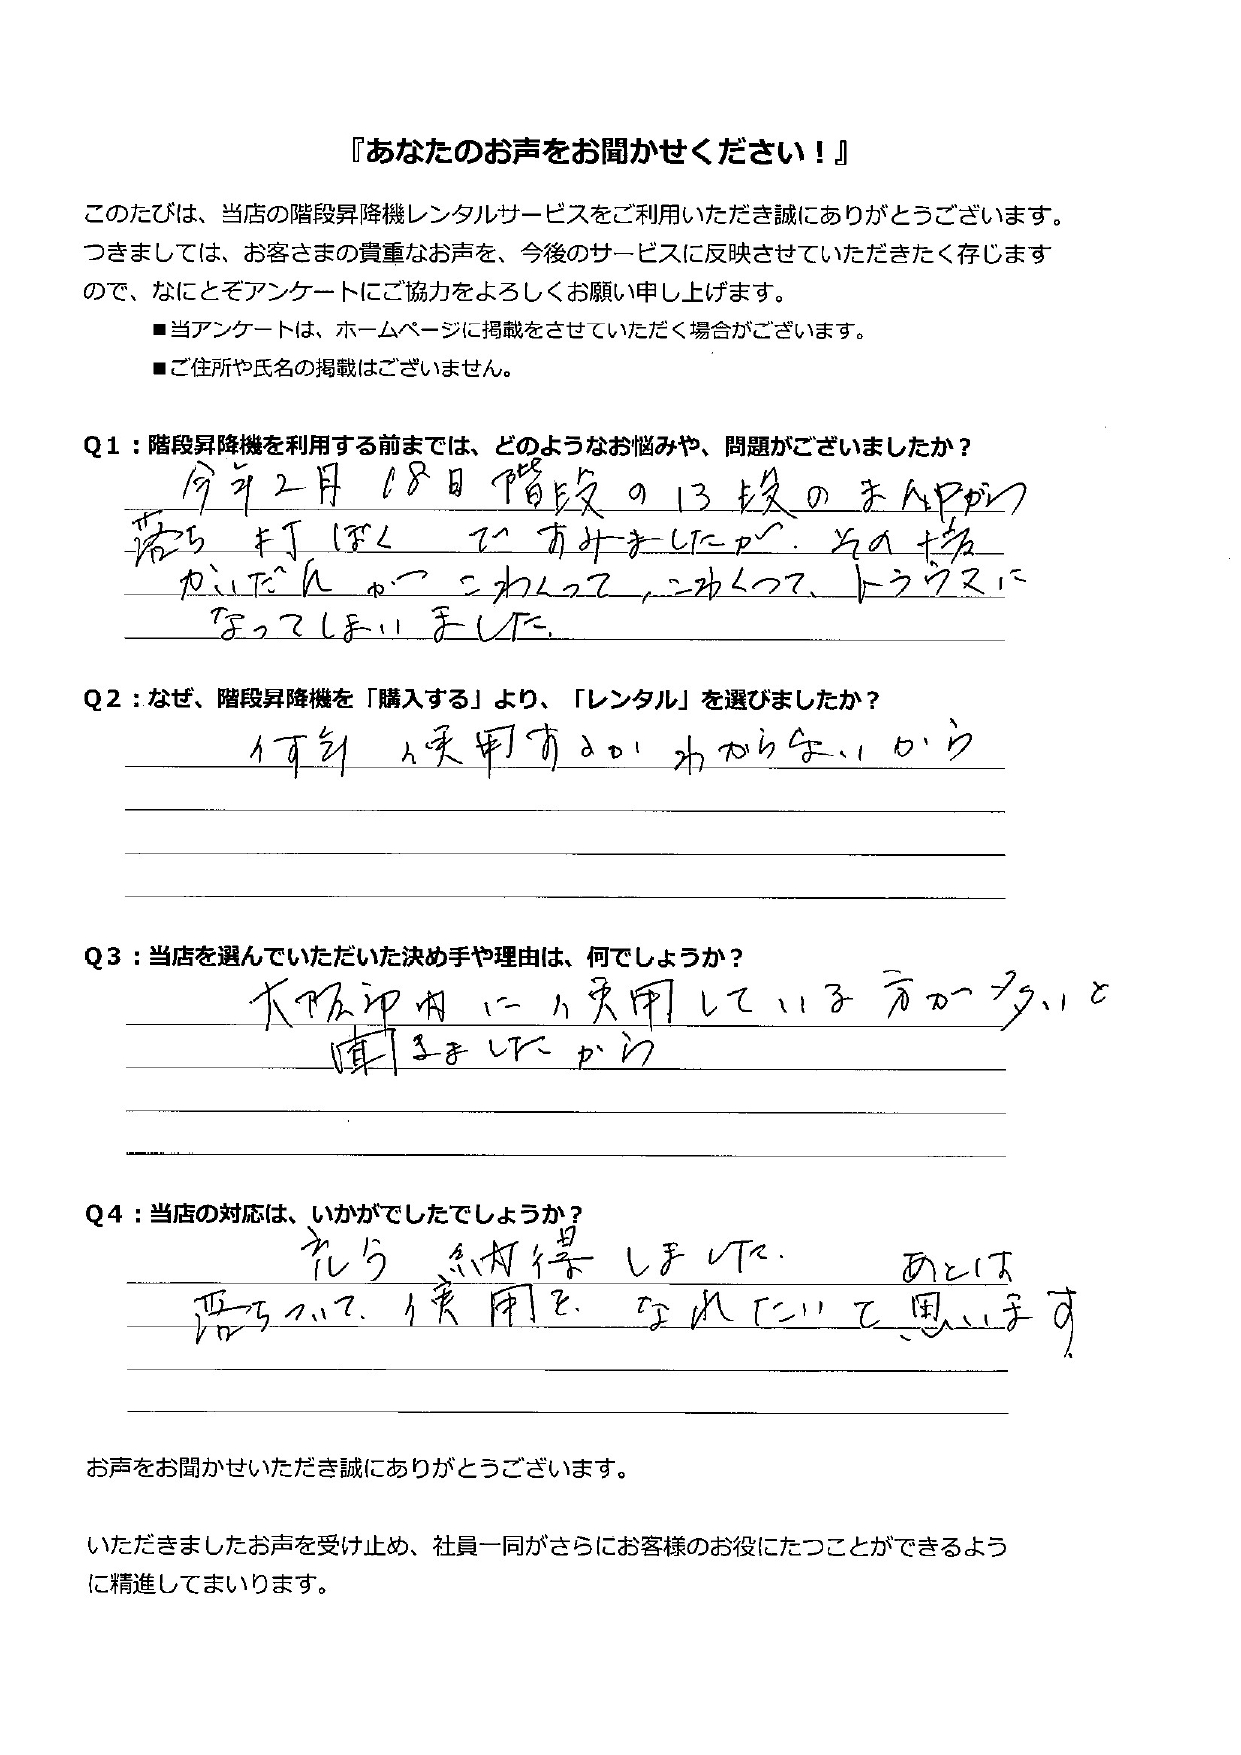 『あなたのお声をお聞かせください！』
このたびは、当店の階段昇降機レンタルサービスをご利用いただき誠にありがとうございます。
つきましては、お客さまの貴重なお声を、今後のサービスに反映させていただきたく存じます
ので、なにとぞアンケートにご協力をよろしくお願い申し上げます。
■当アンケートは、ホームページに掲載をさせていただく場合がございます。
■ご住所や氏名の掲載はございません。
Q１：階段昇降機を利用する前までは、どのようなお悩みや、問題がございましたか？
今年2月18日階段の13段のまん中から
落ち 打ぼく ですみましたが、その後
かいだんがこわくって、こわくって、トラウスに
なってしまいました。
Q２：なぜ、階段昇降機を「購入する」より、「レンタル」を選びましたか？
何年使用するかわからないから
Q３：当店を選んでいただいた決め手や理由は、何でしょうか？
大阪府内に使用している方が多いと
聞きましたから
Q４：当店の対応は、いかがでしたでしょうか？
納得しました。 あとは
落ちついて、使用を、なれたいて思います。
お声をお聞かせいただき誠にありがとうございます。
いただきましたお声を受け止め、社員一同がさらにお客様のお役にたつことができるよう
に精進してまいります。